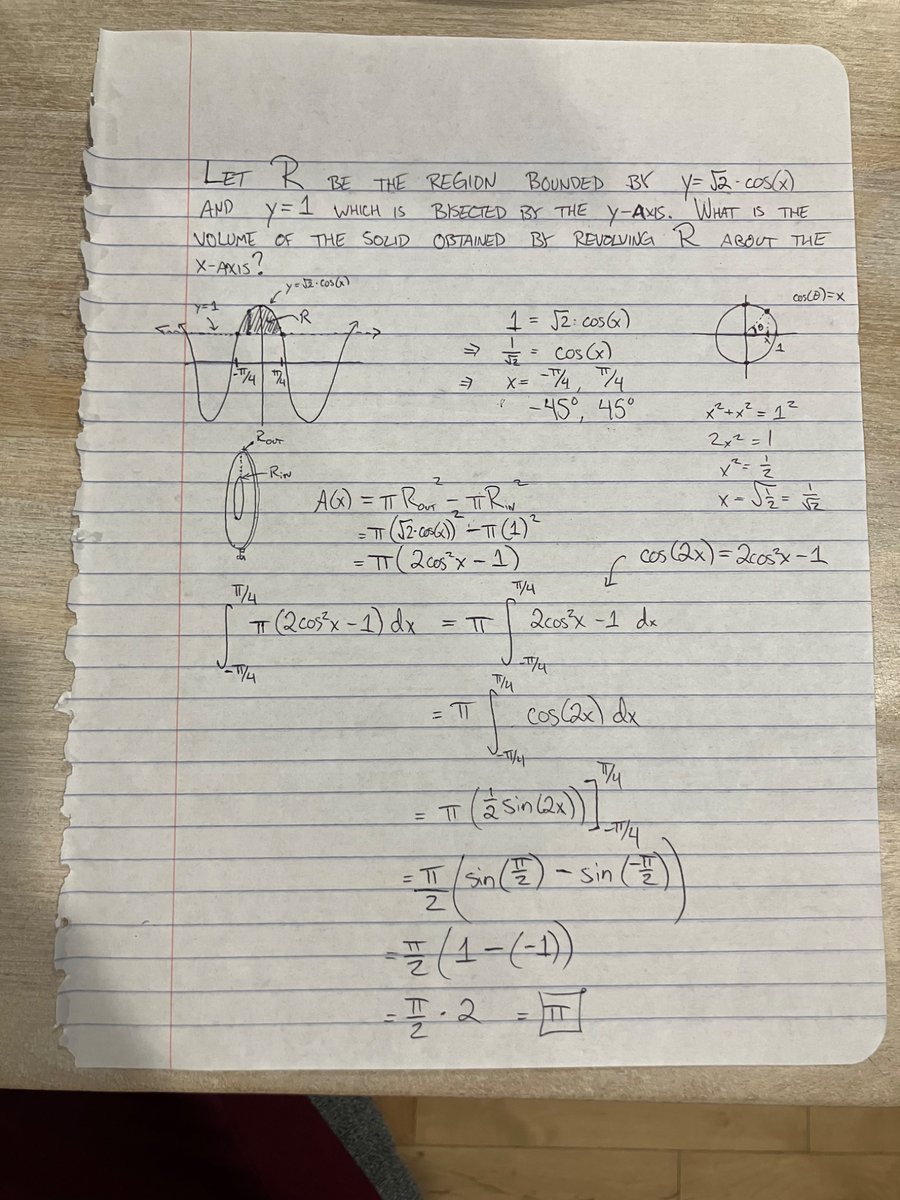 LET R BE THE REGION BOUNDED BY y=√2·cos(x)
AND y=1 WHICH IS BISECTED BY THE y-AXIS. WHAT IS THE
VOLUME OF THE SOLID OBTAINED BY REVOLVING R ABOUT THE
X-AXIS?
y=√2·cos(x)
y=1
R
-π/4
π/4
1 = √2·cos(x)
⇒ 1/√2 = cos(x)
⇒ x = -π/4, π/4
-45°, 45°
cos(θ)=x
θ
x
1
x²+x²=1²
2x²=1
x²=1/2
x=√1/2=1/√2
R_OUT
R_IN
dx
A(x) = πR_OUT² - πR_IN²
=π(√2·cos(x))² - π(1)²
=π(2cos²x - 1)
cos(2x)=2cos²x-1
∫_{-π/4}^{π/4} π(2cos²x-1)dx = π ∫_{-π/4}^{π/4} 2cos²x-1 dx
= π ∫_{-π/4}^{π/4} cos(2x) dx
= π(1/2 sin(2x))]_{-π/4}^{π/4}
= π/2 (sin(π/2) - sin(-π/2))
= π/2 (1-(-1))
= π/2 · 2 = π